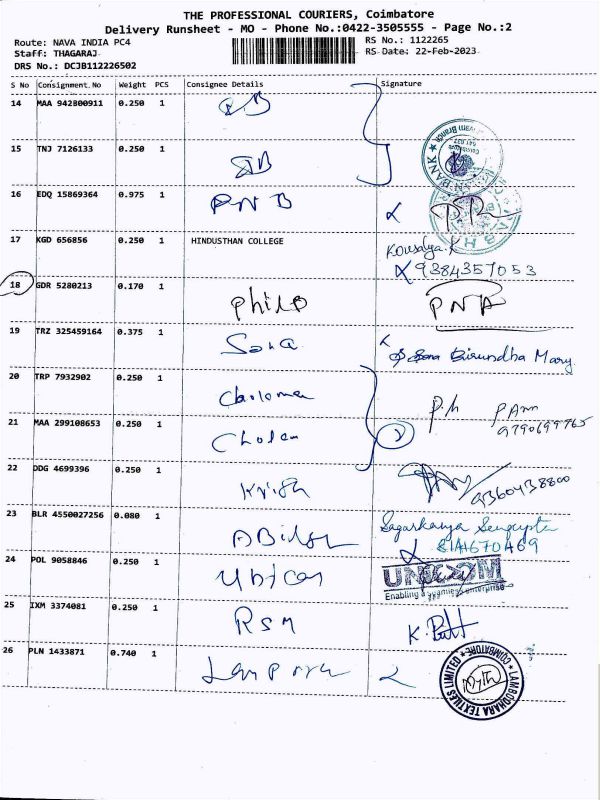 THE PROFESSIONAL COURIERS, Coimbatore
Delivery Runsheet - MO - Phone No.:0422-3505555 - Page No.:2
Route: NAVA INDIA PC4
RS No.: 1122265
Staff: THAGARAJ
RS Date: 22-Feb-2023
DRS No.: DCJB112226502
S No Consignment No Weight PCS Consignee Details Signature
14 MAA 942800911 0.250 1
15 TNJ 7126133 0.250 1
16 EDQ 15869364 0.975 1 PNB
17 KGD 656856 0.250 1 HINDUSTHAN COLLEGE
Kousalya.K
9384357053
18 GDR 5280213 0.170 1 Philo
19 TRZ 325459164 0.375 1 Sona
Birundha Mary
20 TRP 7932902 0.250 1
21 MAA 299108653 0.250 1 Cholan
22 DDG 4699396 0.250 1 Krish
9360438800
23 BLR 4550027256 0.080 1
Sengupta
24 POL 9058846 0.250 1
Enabling
25 IXM 3374081 0.250 1 RSM
26 PLN 1433871 0.740 1
LAMBODHARA TEXTILES LIMITED
COIMBATORE